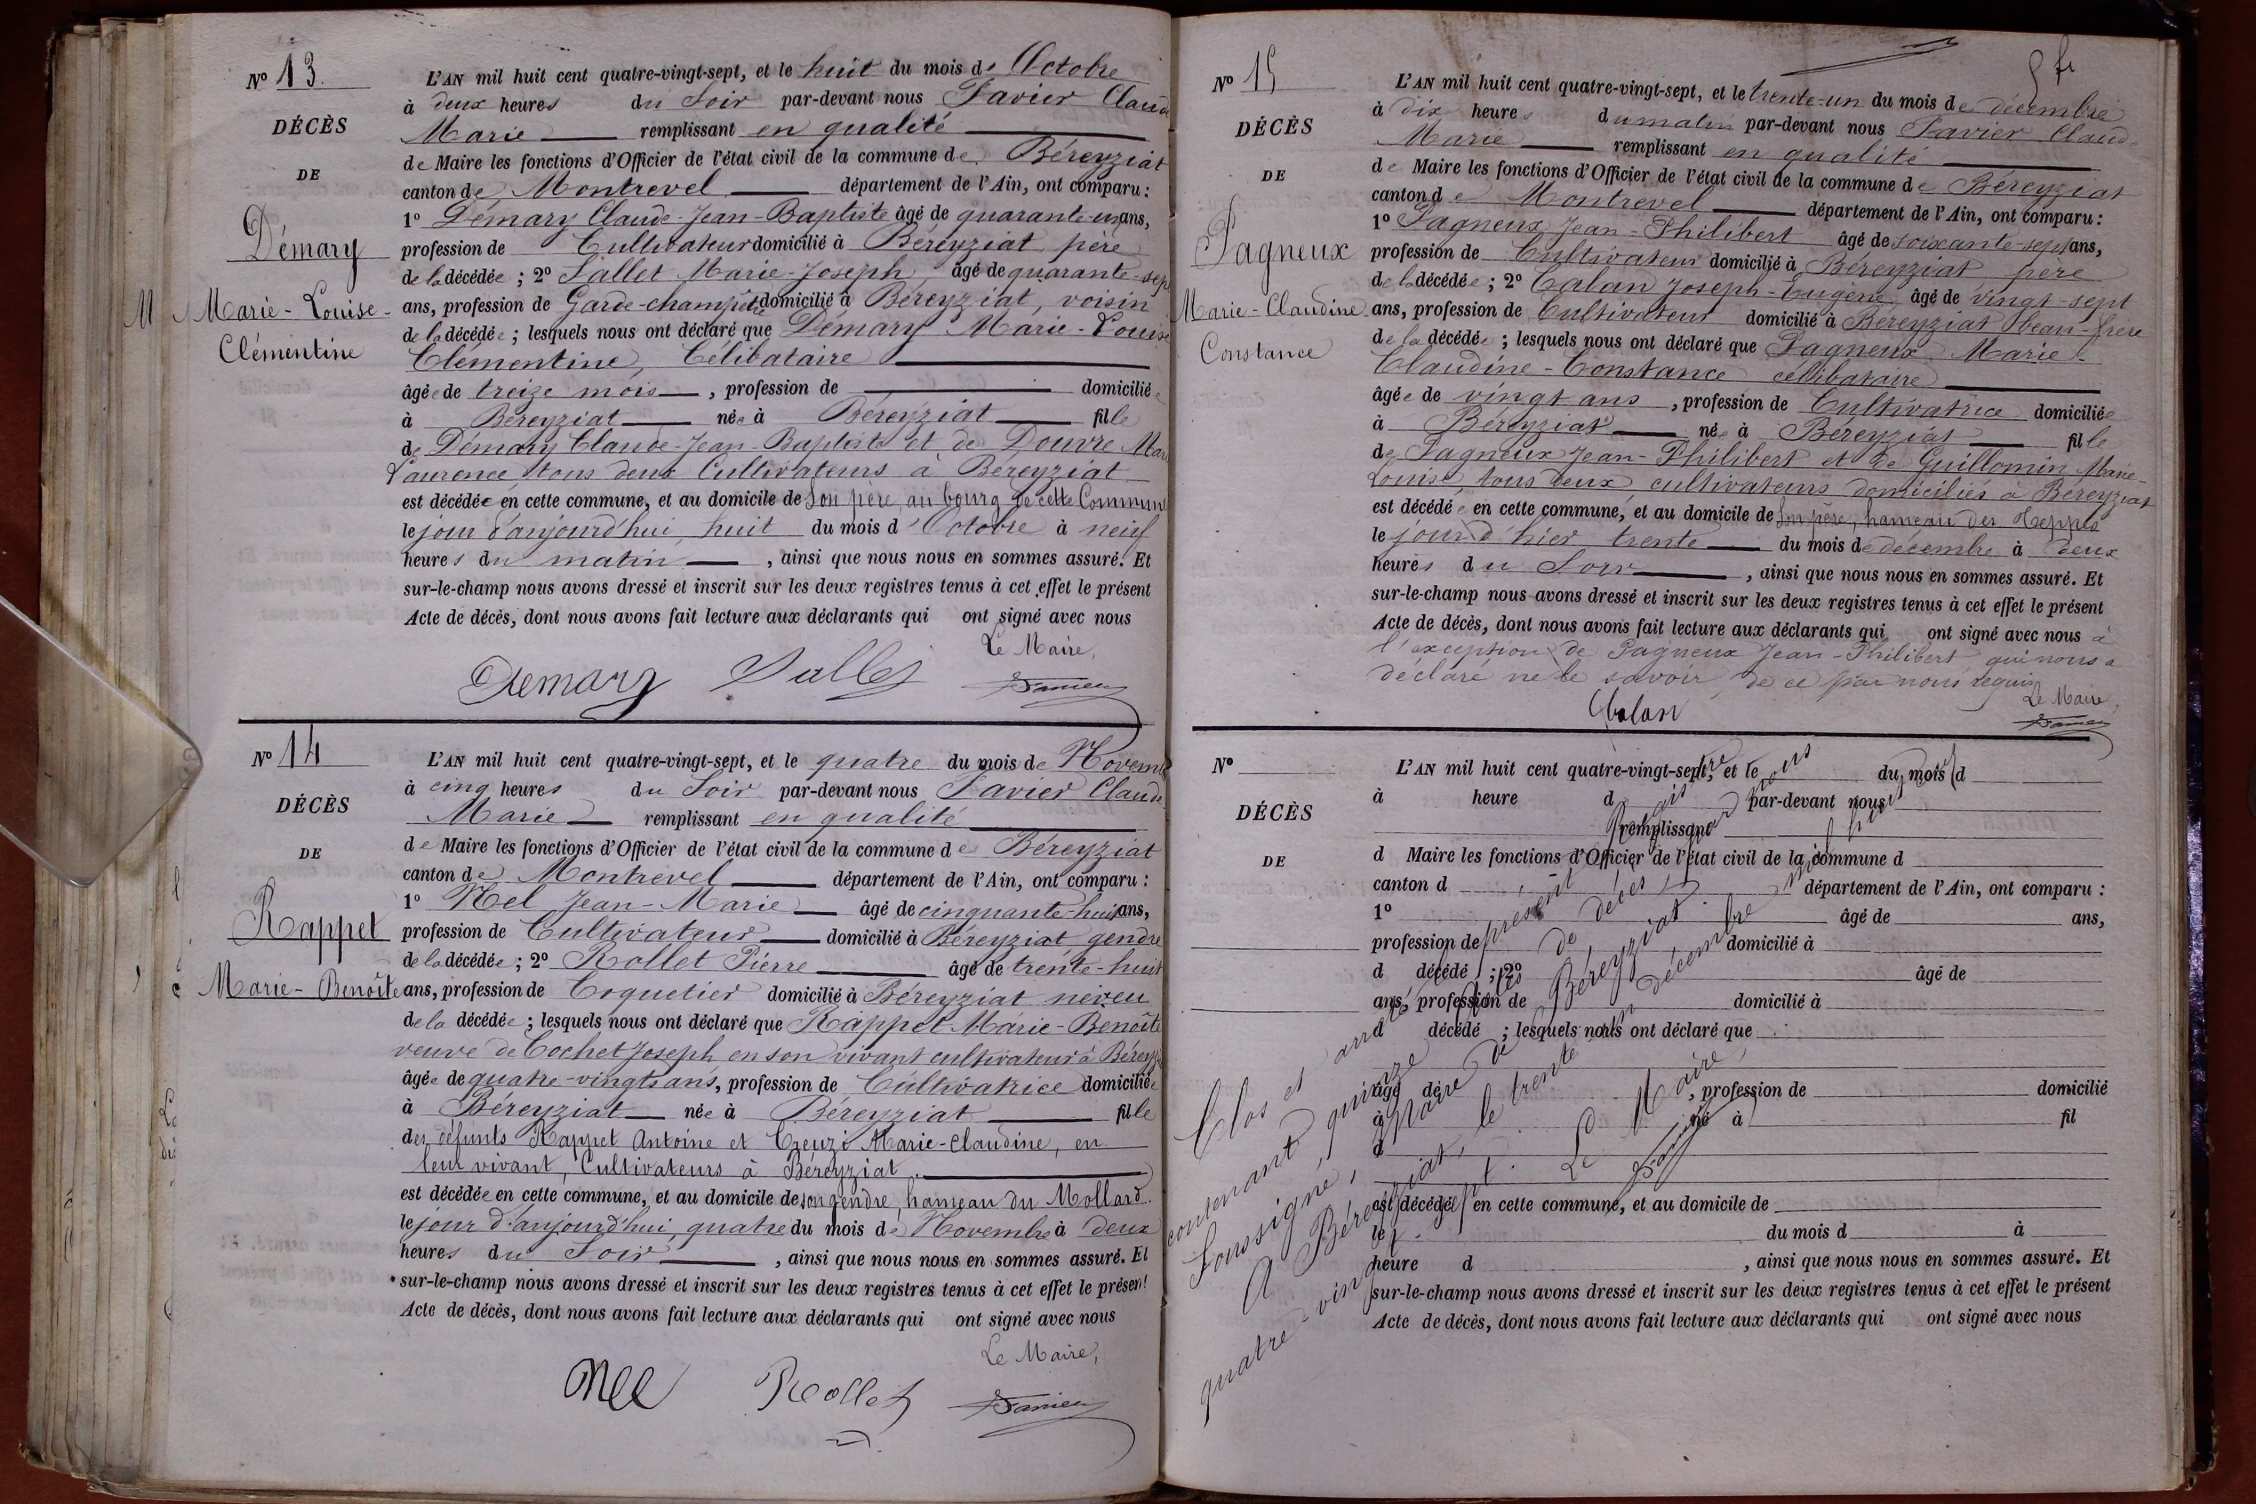 N° 13.
DÉCÈS
DE
Démary
Marie-Louise-
Clémentine
L'AN mil huit cent quatre-vingt-sept, et le huit du mois d'Octobre
à deux heures du Soir par-devant nous Favier Claude
Marie remplissant en qualité
de Maire les fonctions d'Officier de l'état civil de la commune de Béreyziat
canton de Montrevel département de l'Ain, ont comparu :
1° Démary Claude-Jean-Baptiste âgé de quarante-un ans,
profession de Cultivateur domicilié à Béreyziat père
de la décédée ; 2° Sallet Marie-Joseph âgé de quarante-sep
ans, profession de Garde-champêtre domicilié à Béreyziat, voisin
de la décédée ; lesquels nous ont déclaré que Démary Marie-Louise
Clémentine, Célibataire
âgée de treize mois , profession de domiciliée
à Béreyziat née à Béreyziat fille
de Démary Claude-Jean-Baptiste et de Douvre Mari
Laurence tous deux Cultivateurs à Béreyziat
est décédée en cette commune, et au domicile de Son père, au bourg de cette Commune
le jour d'aujourd'hui, huit du mois d'Octobre à neuf
heures du matin , ainsi que nous nous en sommes assuré. Et
sur-le-champ nous avons dressé et inscrit sur les deux registres tenus à cet effet le présent
Acte de décès, dont nous avons fait lecture aux déclarants qui ont signé avec nous
Le Maire,
Demary Sallet Favier
N° 14
DÉCÈS
DE
Rappet
Marie-Benoîte
L'AN mil huit cent quatre-vingt-sept, et le quatre du mois de Novemb
à cinq heures du Soir par-devant nous Favier Claude
Marie remplissant en qualité
de Maire les fonctions d'Officier de l'état civil de la commune de Béreyziat
canton de Montrevel département de l'Ain, ont comparu :
1° Nel Jean-Marie âgé de cinquante-huit ans,
profession de Cultivateur domicilié à Béreyziat gendre
de la décédée ; 2° Rollet Pierre âgé de trente-huit
ans, profession de Coquetier domicilié à Béreyziat neveu
de la décédée ; lesquels nous ont déclaré que Rappet Marie-Benoîte
veuve de Cochet Joseph, en son vivant cultivateur à Béreyzi
âgée de quatre-vingts ans, profession de Cultivatrice domiciliée
à Béreyziat née à Béreyziat fille
des défunts Rappet Antoine et Creuzi Marie-Claudine, en
leur vivant, Cultivateurs à Béreyziat
est décédée en cette commune, et au domicile de son gendre, hameau du Mollard
le jour d'aujourd'hui, quatre du mois de Novembre à deux
heures du Soir , ainsi que nous nous en sommes assuré. Et
sur-le-champ nous avons dressé et inscrit sur les deux registres tenus à cet effet le présent
Acte de décès, dont nous avons fait lecture aux déclarants qui ont signé avec nous
Le Maire,
Nel Rollet Favier
N° 15
DÉCÈS
DE
Pagneux
Marie-Claudine
Constance
L'AN mil huit cent quatre-vingt-sept, et le trente-un du mois de décembre
à dix heures du matin par-devant nous Favier Claud
Marie remplissant en qualité
de Maire les fonctions d'Officier de l'état civil de la commune de Béreyziat
canton de Montrevel département de l'Ain, ont comparu :
1° Pagneux Jean-Philibert âgé de soixante-sept ans,
profession de Cultivateur domicilié à Béreyziat père
de la décédée ; 2° Calan Joseph-Eugène âgé de vingt-sept
ans, profession de Cultivateur domicilié à Béreyziat beau-frère
de la décédée ; lesquels nous ont déclaré que Pagneux Marie-
Claudine-Constance célibataire
âgée de vingt ans , profession de Cultivatrice domiciliée
à Béreyziat née à Béreyziat fille
de Pagneux Jean-Philibert et de Guillomin Marie-
Louise, tous deux cultivateurs domiciliés à Béreyziat
est décédée en cette commune, et au domicile de Son père, hameau des
le jour d'hier trente du mois de décembre à deux
heures du Soir , ainsi que nous nous en sommes assuré. Et
sur-le-champ nous avons dressé et inscrit sur les deux registres tenus à cet effet le présent
Acte de décès, dont nous avons fait lecture aux déclarants qui ont signé avec nous à
l'exception de Pagneux Jean-Philibert qui nous a
déclaré ne le savoir, de ce par nous requis
Le Maire,
Calan Favier
N°
DÉCÈS
DE
L'AN mil huit cent quatre-vingt-sept, et le du mois d
à heure d par-devant nous
remplissant
d Maire les fonctions d'Officier de l'état civil de la commune d
canton d département de l'Ain, ont comparu :
1° âgé de ans,
profession de domicilié à
d décédé ; 2° âgé de
ans, profession de domicilié à
d décédé ; lesquels nous ont déclaré que
âgé de , profession de domicilié
à né à fil
d
est décédé en cette commune, et au domicile de
le du mois d à
heure d , ainsi que nous nous en sommes assuré. Et
sur-le-champ nous avons dressé et inscrit sur les deux registres tenus à cet effet le présent
Acte de décès, dont nous avons fait lecture aux déclarants qui ont signé avec nous
Clos et arrêté le présent Registre
contenant quinze actes de décès par nous
Soussigné, Maire de Béreyziat.
A Béreyziat, le trente-un décembre mil huit cent
quatre-vingt-sept. Le Maire,
Favier